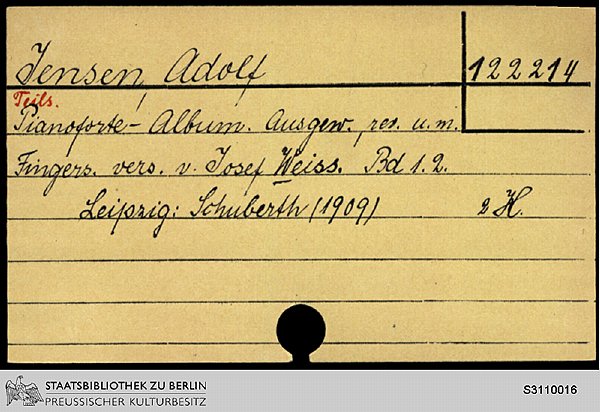 Jensen, Adolf 122214
Teils.
Pianoforte-Album. Ausgew., rev. u. m.
Fingers. vers. v. Josef Weiss. Bd 1. 2.
Leipzig: Schuberth (1909) 2 H.
STAATSBIBLIOTHEK ZU BERLIN
PREUSSISCHER KULTURBESITZ
S3110016